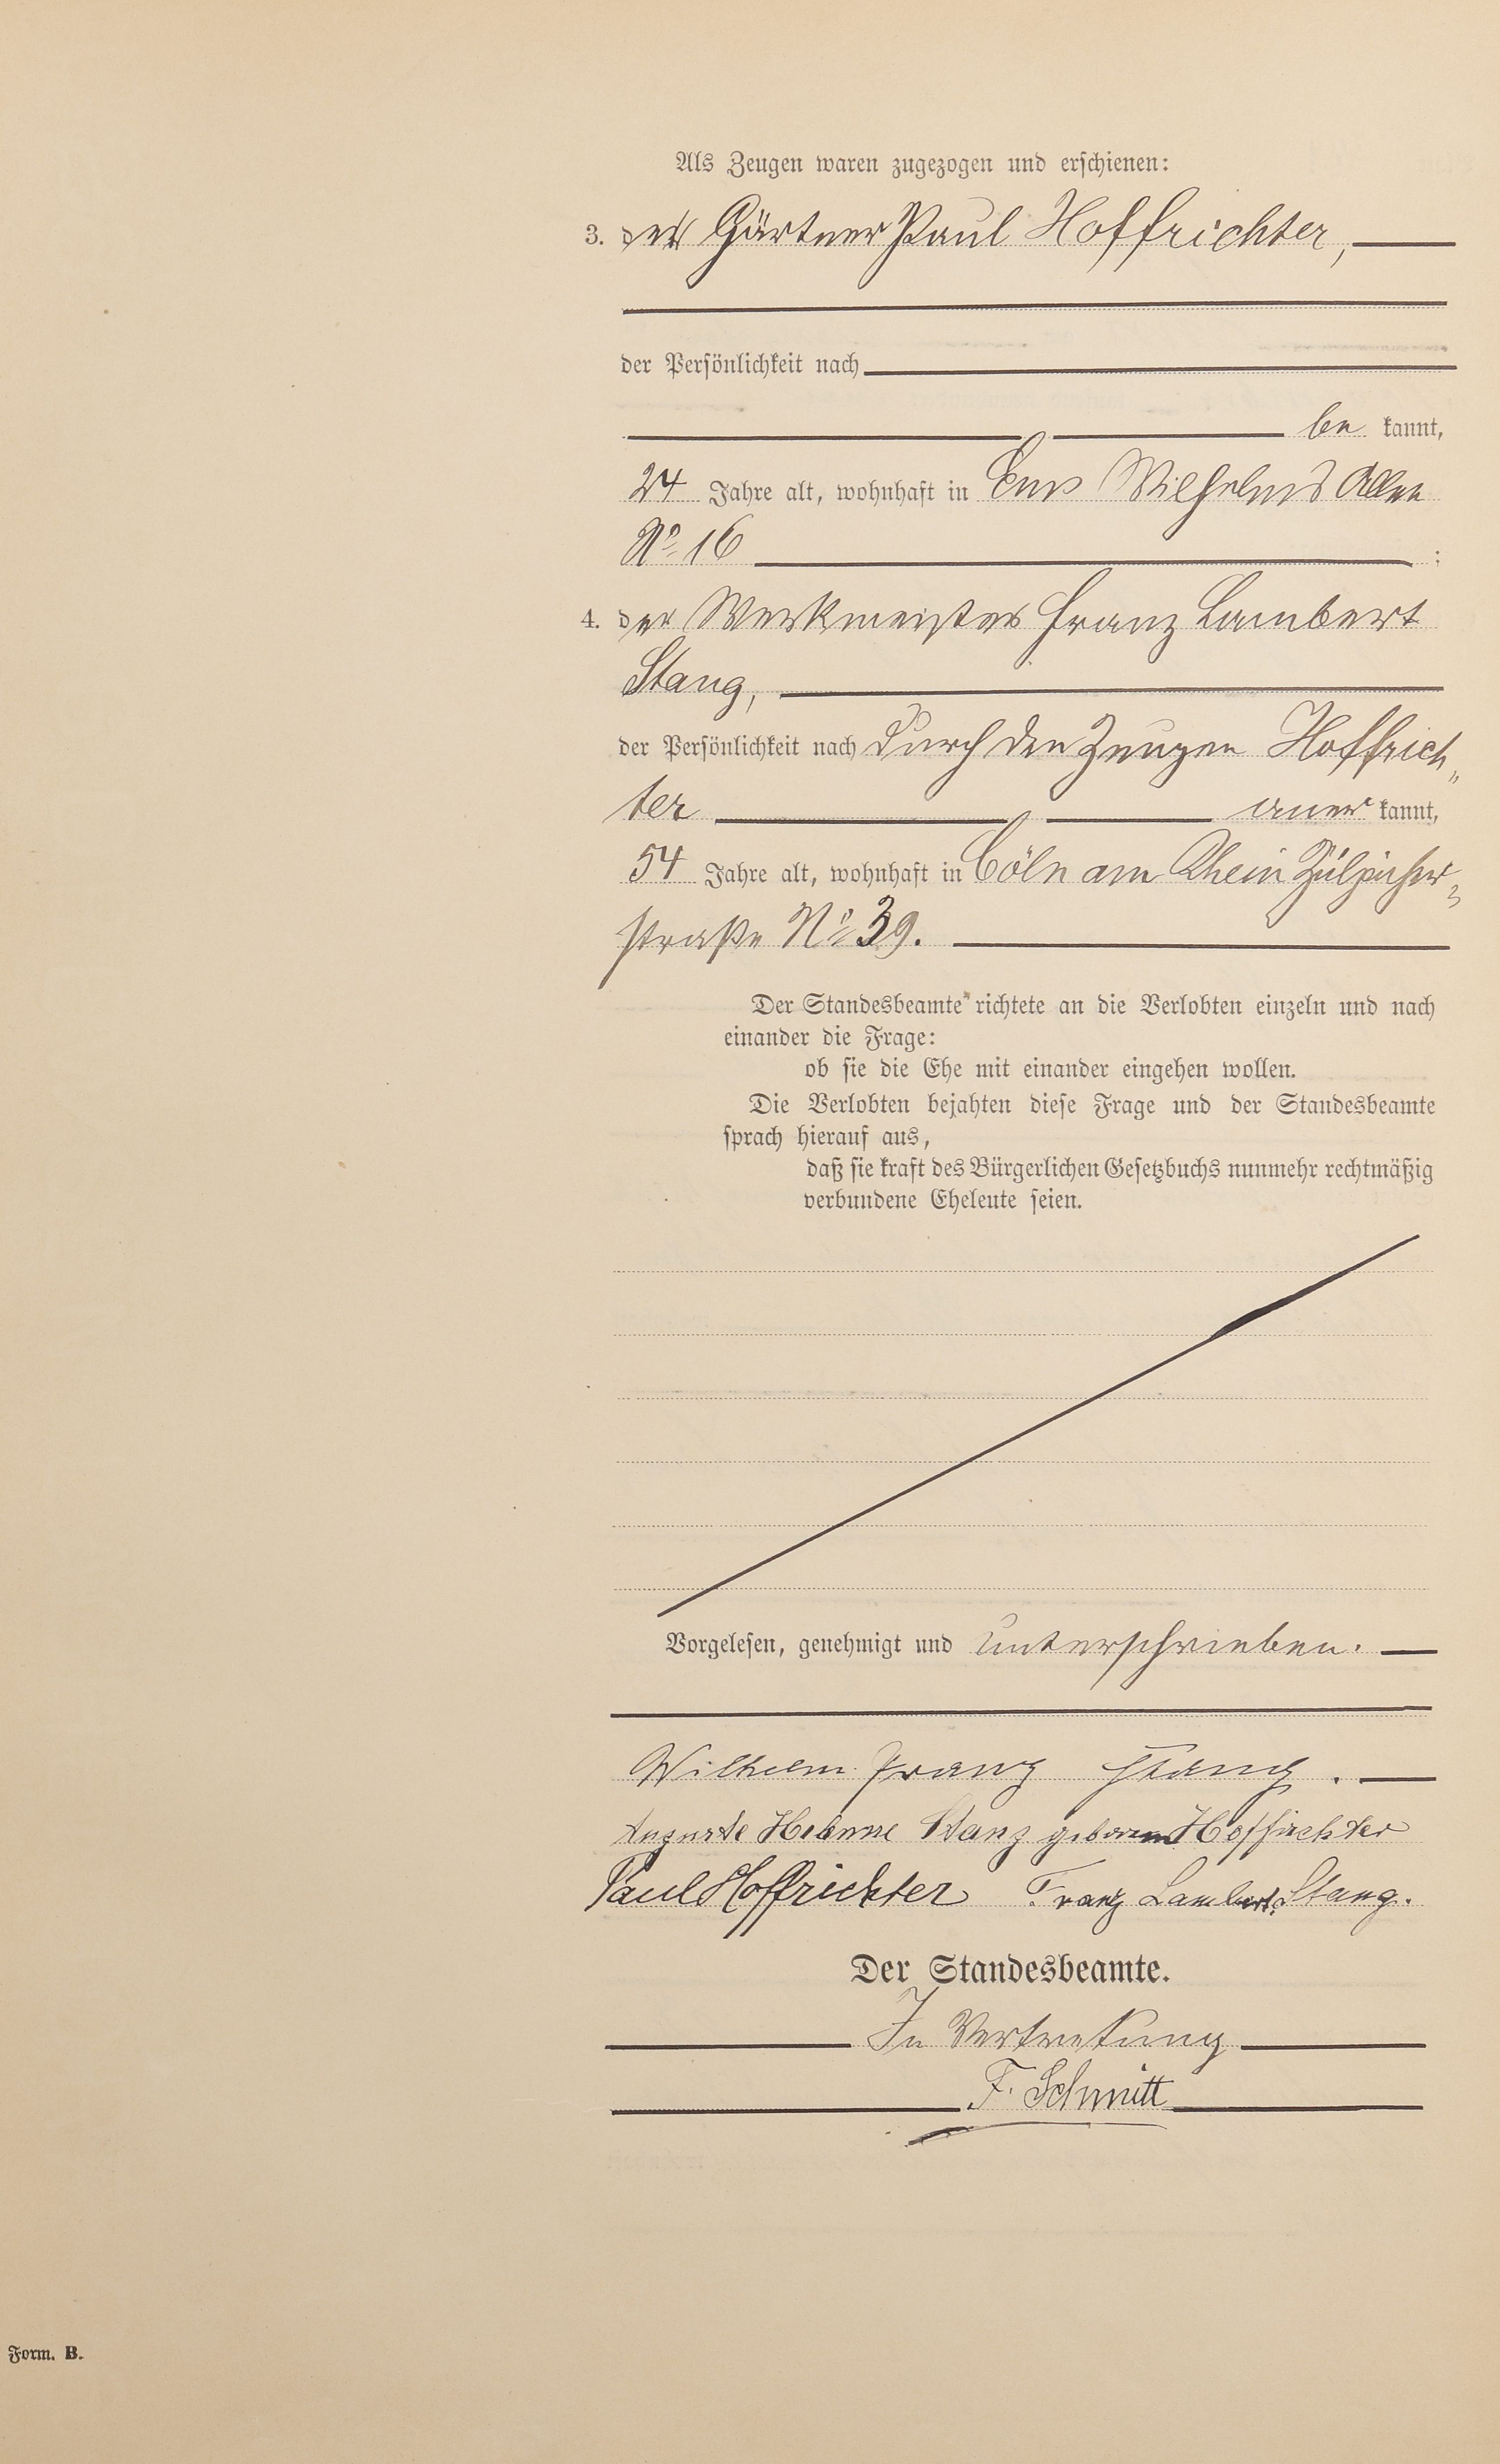 Als Zeugen waren zugezogen und erschienen:
3. der Gärtner Paul Hoffrichter,
der Persönlichkeit nach
be kannt,
24 Jahre alt, wohnhaft in Ems Wilhelms Allee
No 16 ;
4. der Werkmeister Franz Lambert
Stang,
der Persönlichkeit nach durch den Zeugen Hoffrich„
ter aner kannt,
54 Jahre alt, wohnhaft in Cöln am Rhein Zülpicher„
straße No 39.
Der Standesbeamte richtete an die Verlobten einzeln und nach
einander die Frage:
ob sie die Ehe mit einander eingehen wollen.
Die Verlobten bejahten diese Frage und der Standesbeamte
sprach hierauf aus,
daß sie kraft des Bürgerlichen Gesetzbuchs nunmehr rechtmäßig
verbundene Eheleute seien.
Vorgelesen, genehmigt und unterschrieben.
Wilhelm Franz Stang.
Auguste Helenne Stang geboren Hoffrichter
Paul Hoffrichter Franz Lambert Stang.
Der Standesbeamte.
In Vertretung
F. Schmitt
Form. B.